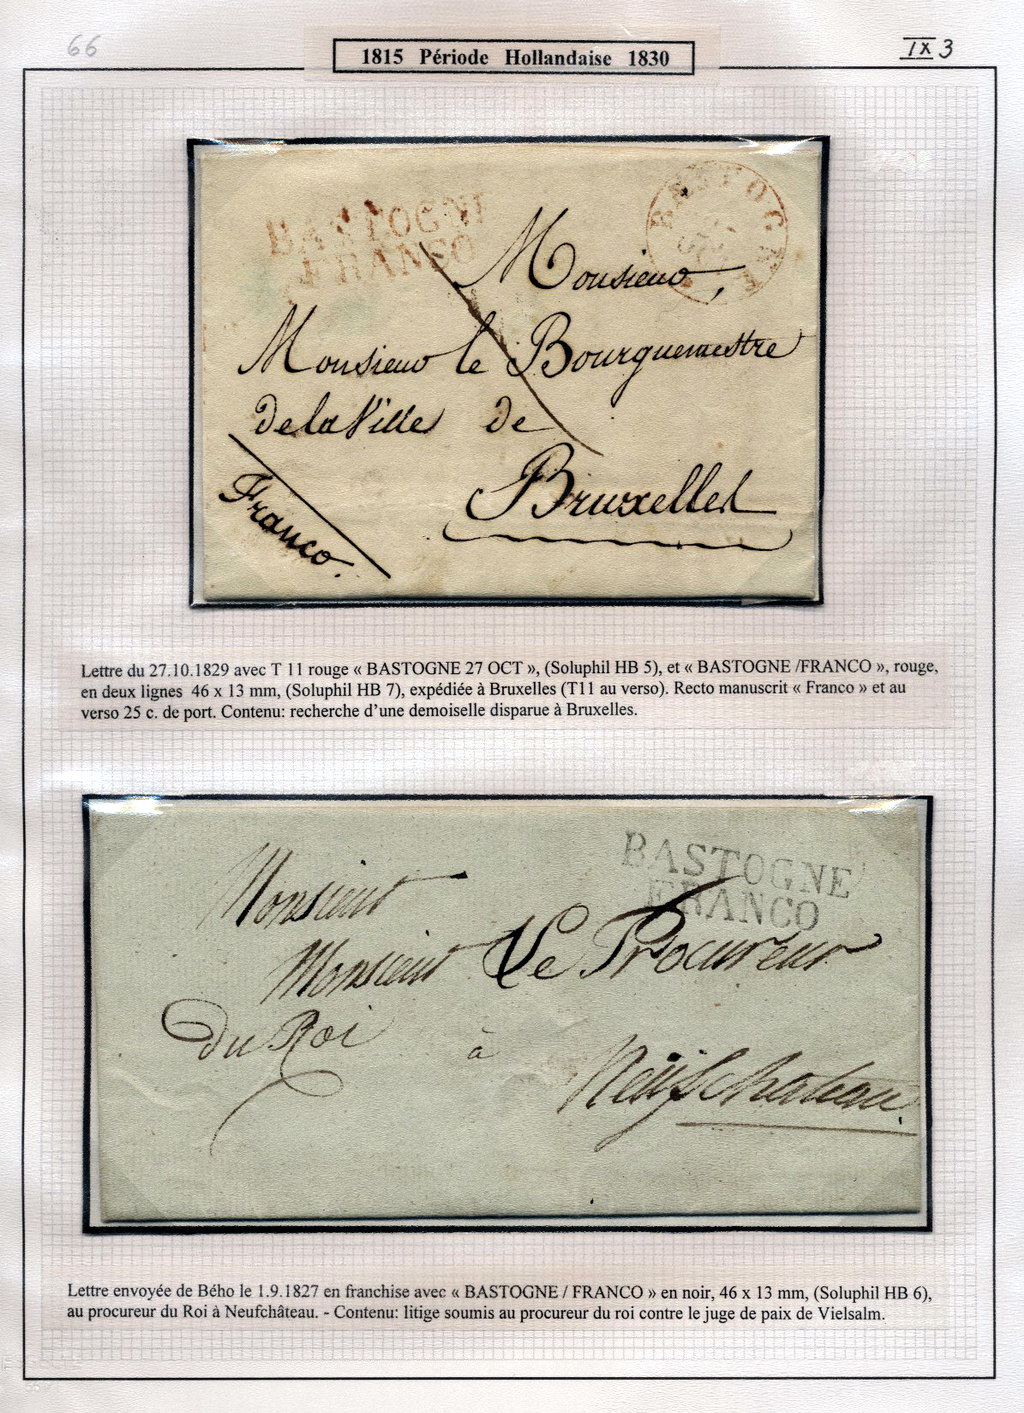 66
1815 Période Hollandaise 1830
IX 3
BASTOGNE
FRANCO
BASTOGNE
27
OCT
Monsieur,
Monsieur le Bourguemestre
de la Ville de
Bruxelles
Franco.
Lettre du 27.10.1829 avec T 11 rouge « BASTOGNE 27 OCT », (Soluphil HB 5), et « BASTOGNE /FRANCO », rouge,
en deux lignes 46 x 13 mm, (Soluphil HB 7), expédiée à Bruxelles (T11 au verso). Recto manuscrit « Franco » et au
verso 25 c. de port. Contenu: recherche d’une demoiselle disparue à Bruxelles.
BASTOGNE
FRANCO
Monsieur
Monsieur Le Procureur
du Roi à
Neufchateau.
Lettre envoyée de Bého le 1.9.1827 en franchise avec « BASTOGNE / FRANCO » en noir, 46 x 13 mm, (Soluphil HB 6),
au procureur du Roi à Neufchâteau. - Contenu: litige soumis au procureur du roi contre le juge de paix de Vielsalm.